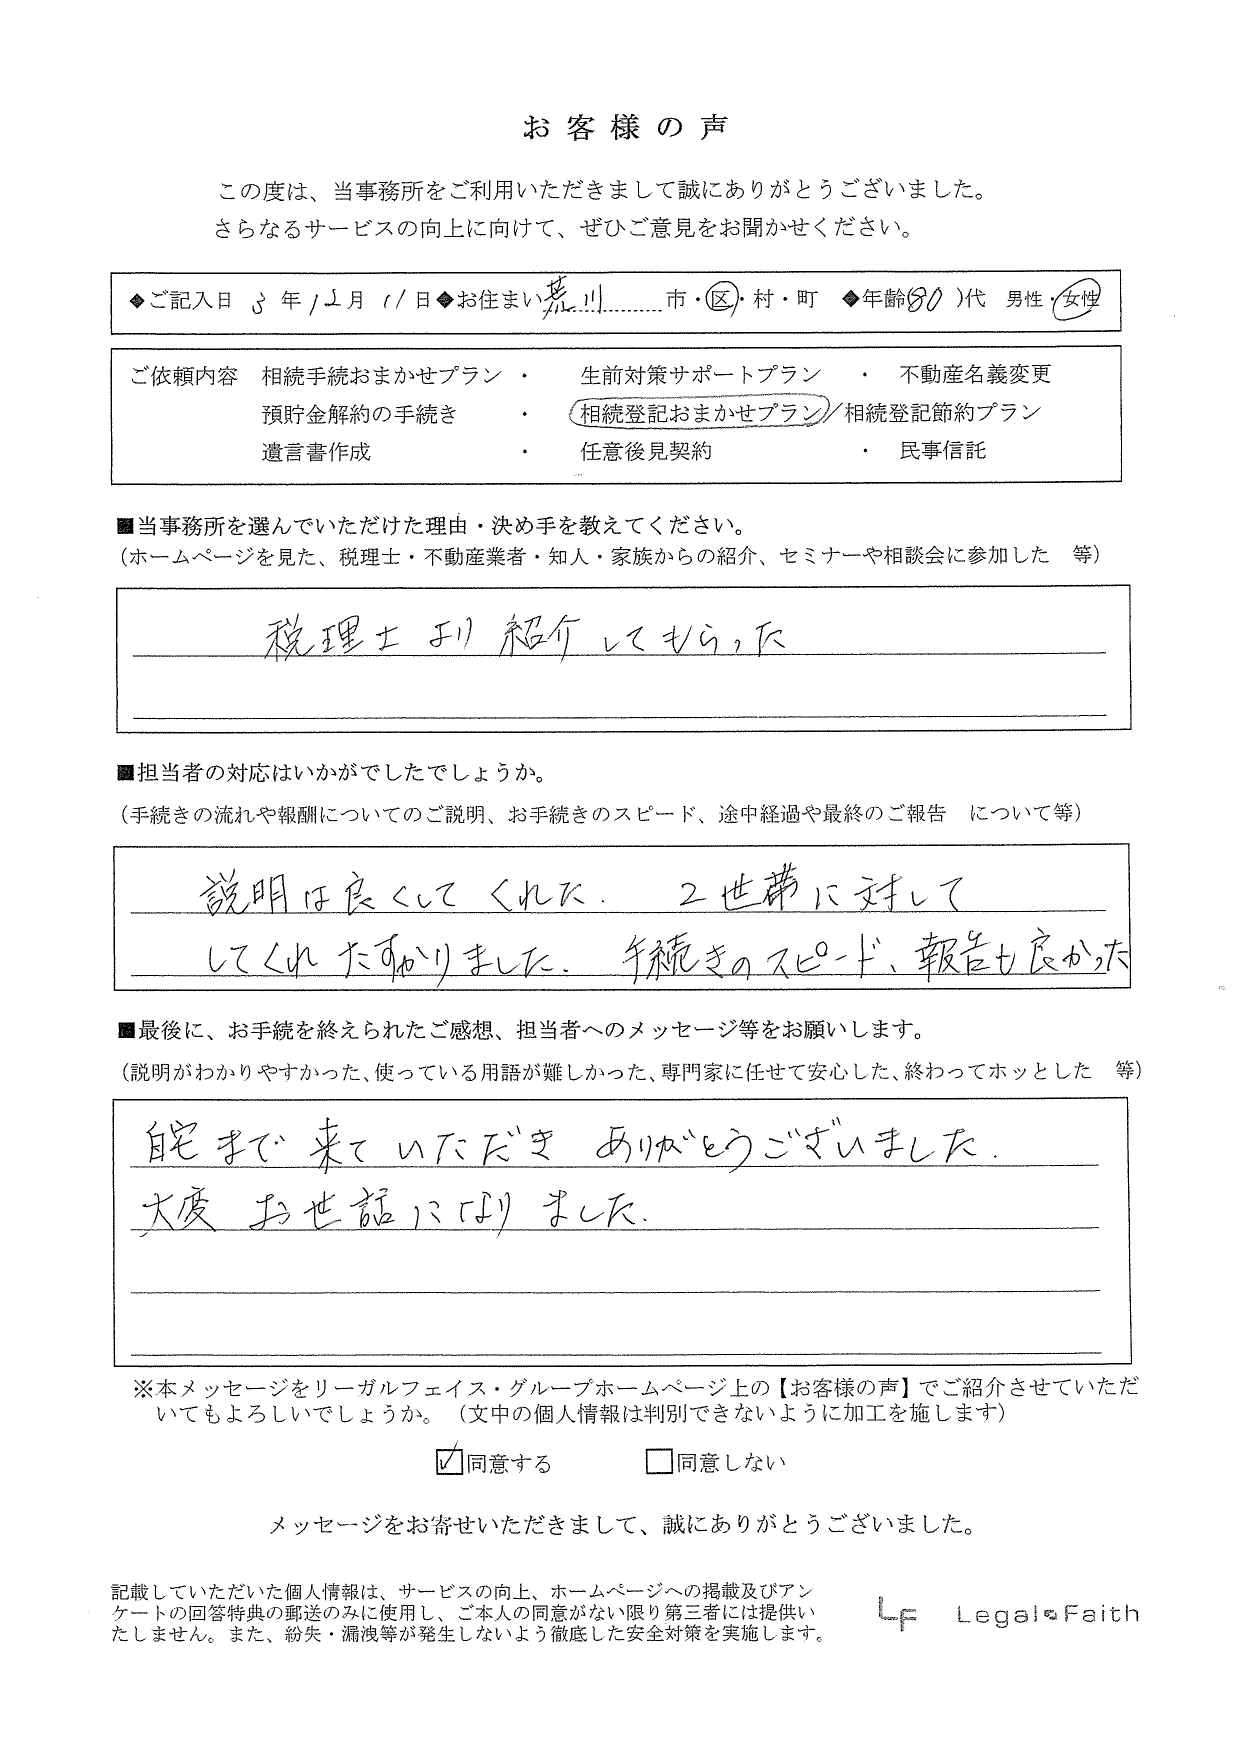 お客様の声
この度は、当事務所をご利用いただきまして誠にありがとうございました。
さらなるサービスの向上に向けて、ぜひご意見をお聞かせください。
◆ご記入日 3 年 12月 11日◆お住まい荒川 市・区・村・町 ◆年齢(80 )代 男性・女性
ご依頼内容 相続手続おまかせプラン ・ 生前対策サポートプラン ・ 不動産名義変更
預貯金解約の手続き ・ 相続登記おまかせプラン/相続登記節約プラン
遺言書作成 ・ 任意後見契約 ・ 民事信託
■当事務所を選んでいただけた理由・決め手を教えてください。
(ホームページを見た、税理士・不動産業者・知人・家族からの紹介、セミナーや相談会に参加した 等)
税理士より紹介してもらった
■担当者の対応はいかがでしたでしょうか。
(手続きの流れや報酬についてのご説明、お手続きのスピード、途中経過や最終のご報告 について等)
説明は良くしてくれた. 2世帯に対して
してくれたすかりました. 手続きのスピード、報告も良かった
■最後に、お手続を終えられたご感想、担当者へのメッセージ等をお願いします。
(説明がわかりやすかった、使っている用語が難しかった、専門家に任せて安心した、終わってホッとした 等)
自宅まで来ていただき ありがとうございました.
大変お世話になりました.
※本メッセージをリーガルフェイス・グループホームページ上の【お客様の声】でご紹介させていただ
いてもよろしいでしょうか。(文中の個人情報は判別できないように加工を施します)
☑同意する □同意しない
メッセージをお寄せいただきまして、誠にありがとうございました。
記載していただいた個人情報は、サービスの向上、ホームページへの掲載及びアン
ケートの回答特典の郵送のみに使用し、ご本人の同意がない限り第三者には提供い
たしません。また、紛失・漏洩等が発生しないよう徹底した安全対策を実施します。
LF Legal Faith